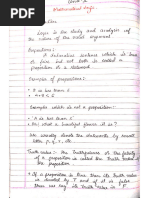 Unit-2
Mathematical Logic
Logic is the study and analysis of
the nature of the valid argument
Propositions:
A declarative sentence which is true
or false but not both is called a
proposition or a statement
Examples of propositions:
8 is less than 5
Example which is not a proposition:
'A' is less than 5.
We usually denote the statements by small
letters p, q, r, etc
Truth value :- The truthfulness or the falsity
of a proposition is called the Truth Value
If a proposition is true then its Truth value
is denoted by T and if it is
false then we say its Truth value is F